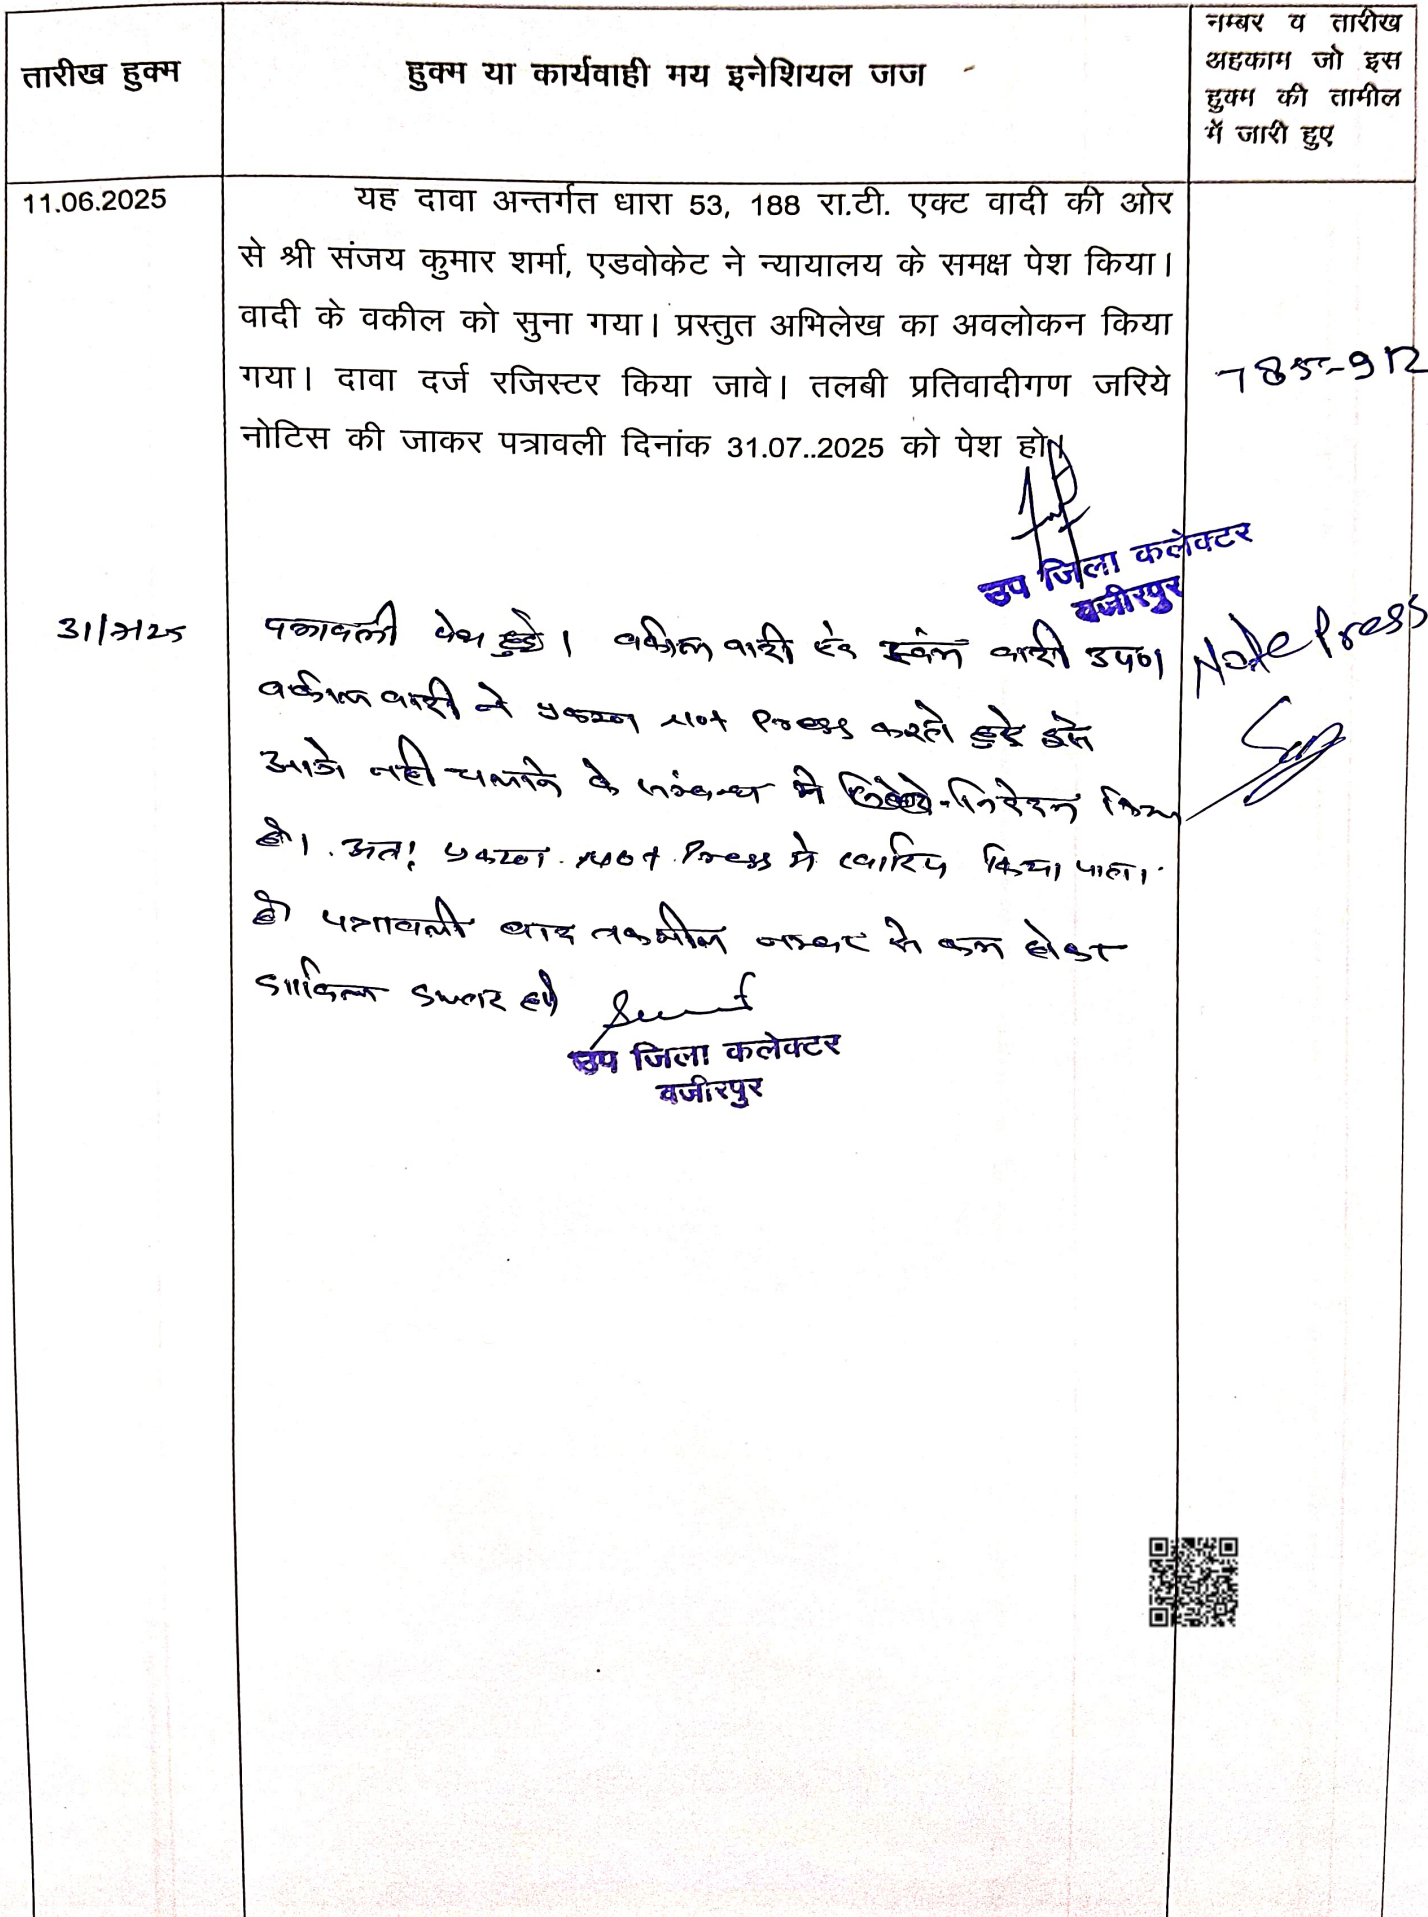 तारीख हुक्म
हुक्म या कार्यवाही मय इनेशियल जज
नम्बर व तारीख
अहकाम जो इस
हुक्म की तामील
में जारी हुए
11.06.2025
यह दावा अन्तर्गत धारा 53, 188 रा.टी. एक्ट वादी की ओर
से श्री संजय कुमार शर्मा, एडवोकेट ने न्यायालय के समक्ष पेश किया।
वादी के वकील को सुना गया। प्रस्तुत अभिलेख का अवलोकन किया
गया। दावा दर्ज रजिस्टर किया जावे। तलबी प्रतिवादीगण जरिये
नोटिस की जाकर पत्रावली दिनांक 31.07..2025 को पेश हो।
785-92
उप जिला कलेक्टर
वजीरपुर
31/7/25
पत्रावली पेश हुई। वकील वादी एवं स्वंम वादी उप०।
वकील वादी ने प्रकरण Not Press करते हुए इसे
आगे नही चलाने के संबन्ध मे निवेदन किया
है। अतः प्रकरण Not Press मे खारिज किया जाता
है पत्रावली बाद तकमील नम्बर से कम होकर
दाखिल दफ्तर हो
Note Press
उप जिला कलेक्टर
वजीरपुर